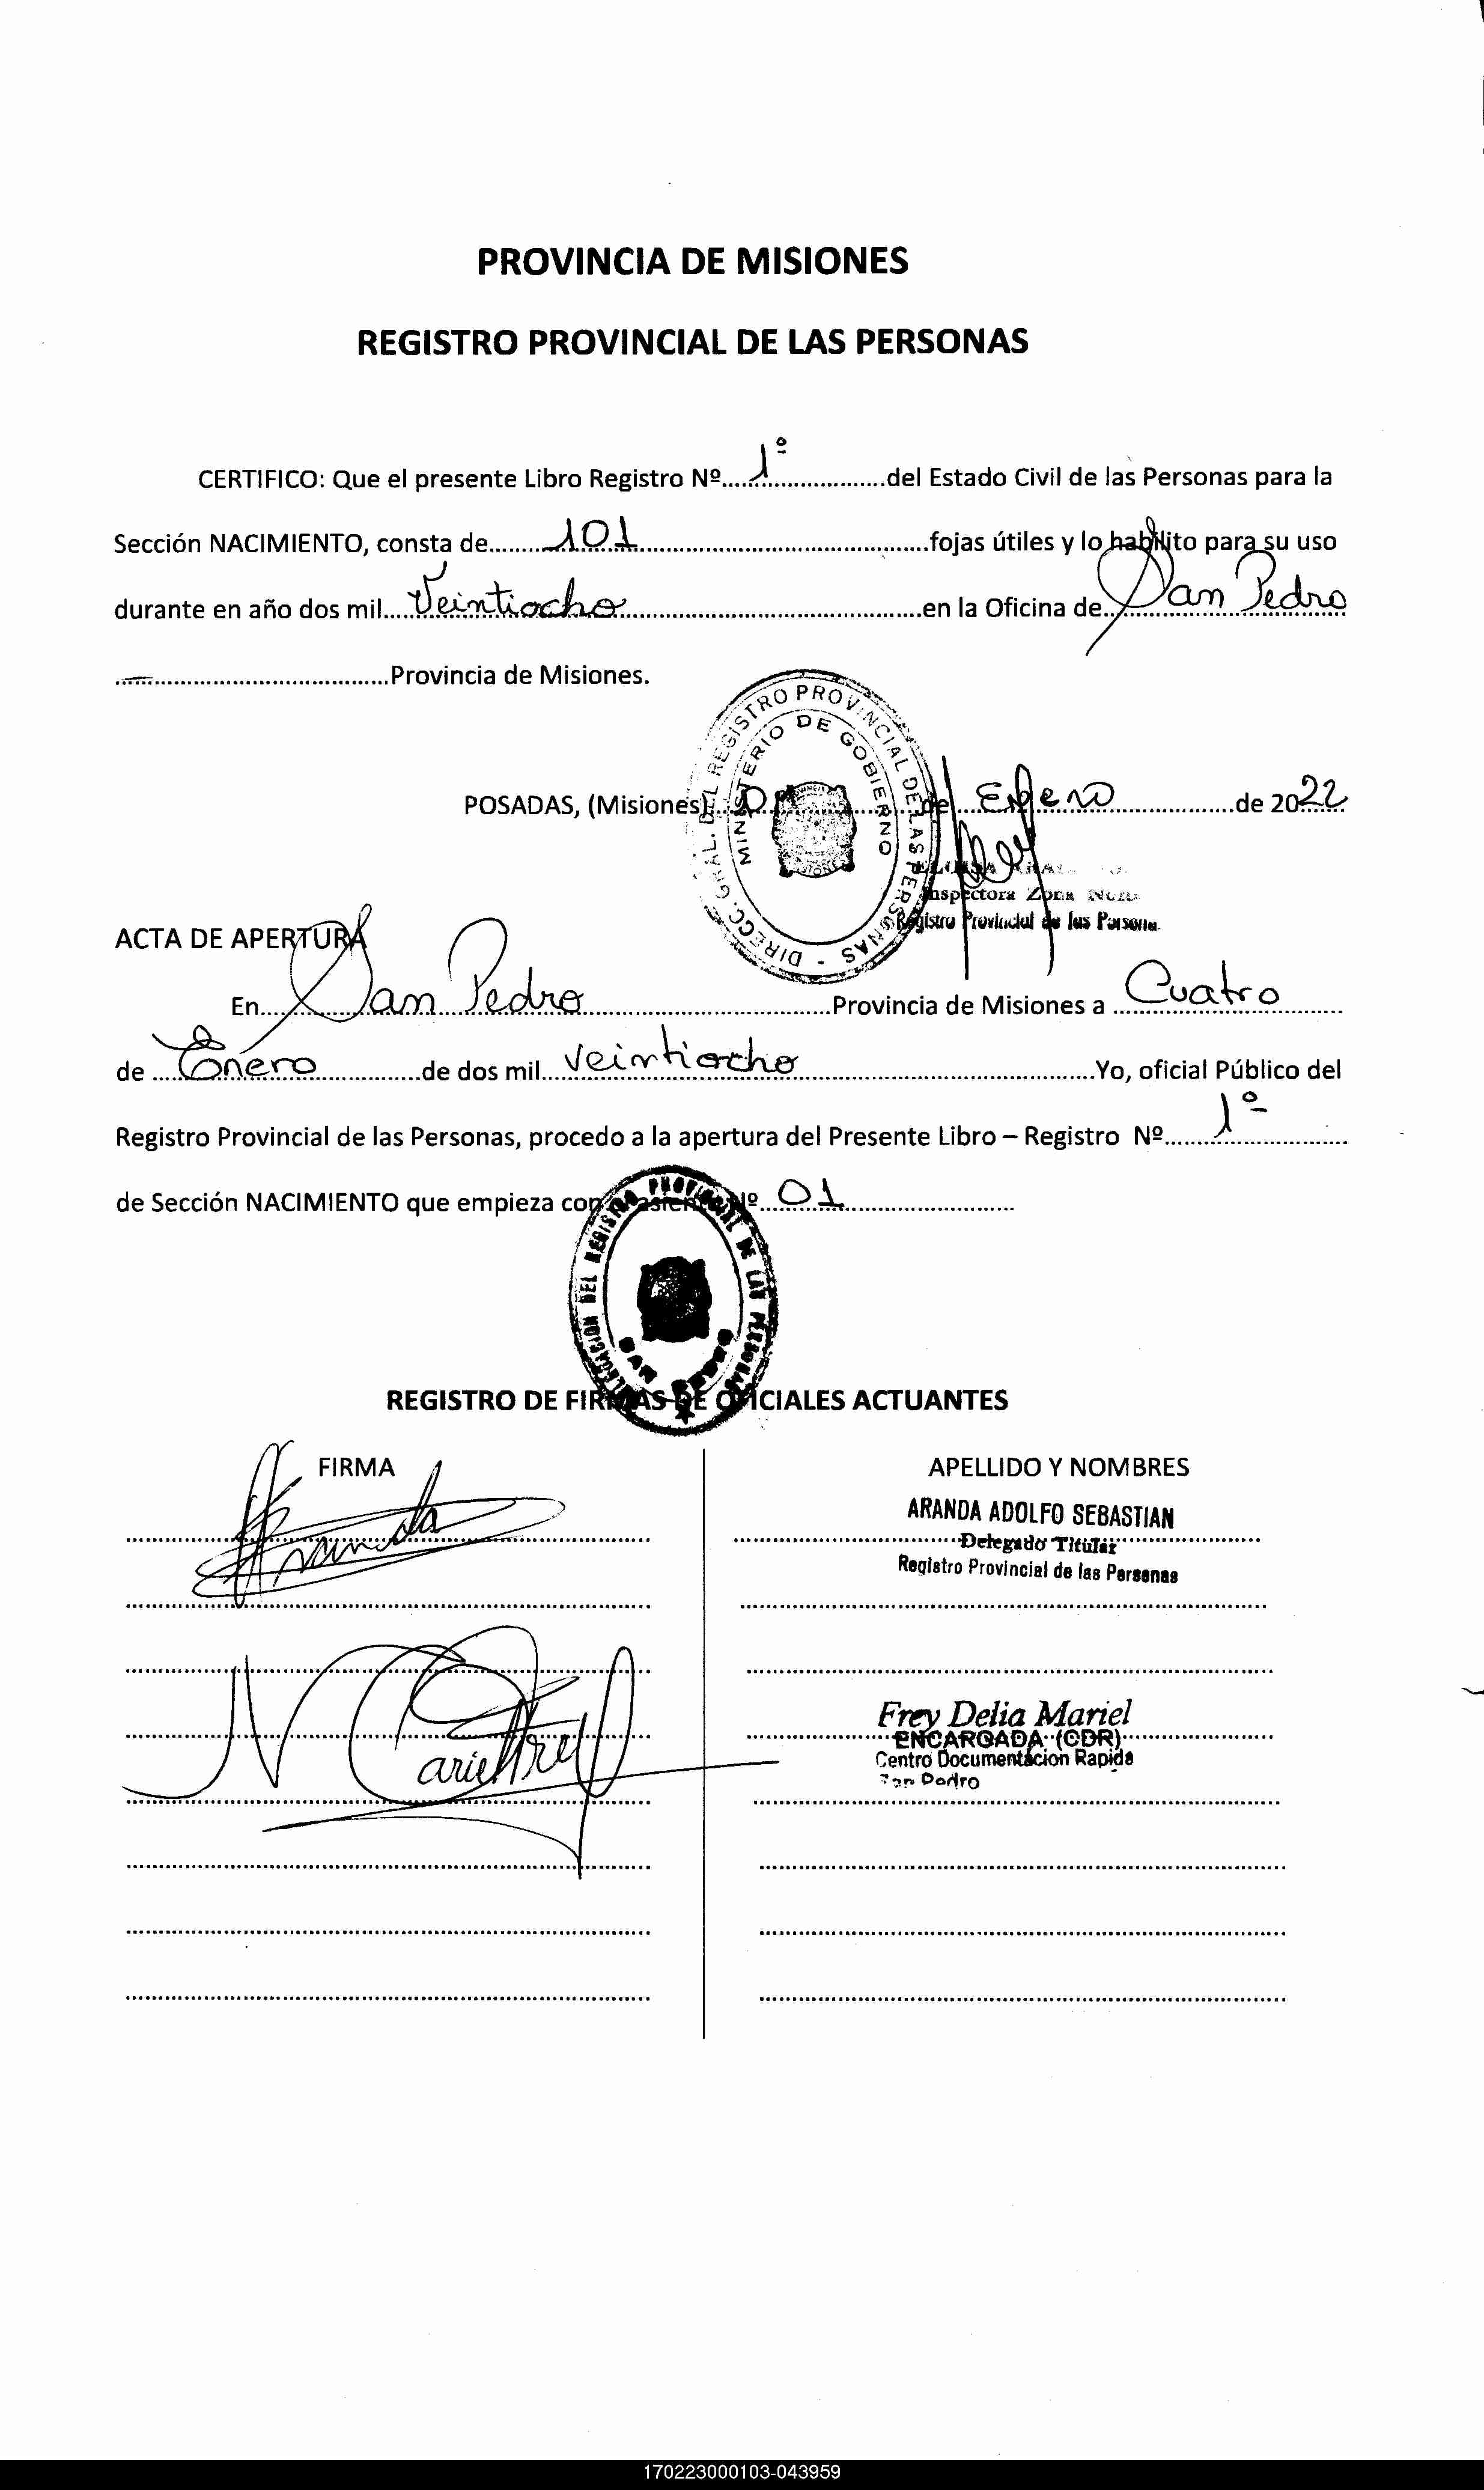 PROVINCIA DE MISIONES
REGISTRO PROVINCIAL DE LAS PERSONAS
CERTIFICO: Que el presente Libro Registro Nº 1º del Estado Civil de las Personas para la
Sección NACIMIENTO, consta de 101 fojas útiles y lo habilito para su uso
durante en año dos mil Veintiocho en la Oficina de San Pedro
Provincia de Misiones.
DIRECC. GRAL. DEL REGISTRO PROVINCIAL DE LAS PERSONAS -
MINISTERIO DE GOBIERNO
POSADAS, (Misiones) de Enero de 2022
Inspectora Zona
Registro Provincial de las Persona
ACTA DE APERTURA
En San Pedro Provincia de Misiones a Cuatro
de Enero de dos mil veintiocho Yo, oficial Público del
Registro Provincial de las Personas, procedo a la apertura del Presente Libro – Registro Nº 1º
de Sección NACIMIENTO que empieza con asiento Nº 01
DELEGACION DEL REGISTRO PROVINCIAL DE LAS PERSONAS
SAN PEDRO
REGISTRO DE FIRMAS DE OFICIALES ACTUANTES
FIRMA
APELLIDO Y NOMBRES
Aranda
ARANDA ADOLFO SEBASTIAN
Delegado Titular
Registro Provincial de las Personas
Frey Delia Mariel
ENCARGADA (CDR)
Centro Documentacion Rapida
San Pedro
170223000103-043959